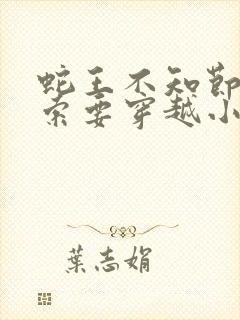 蛇王不知节
索要穿越小
葉志娟